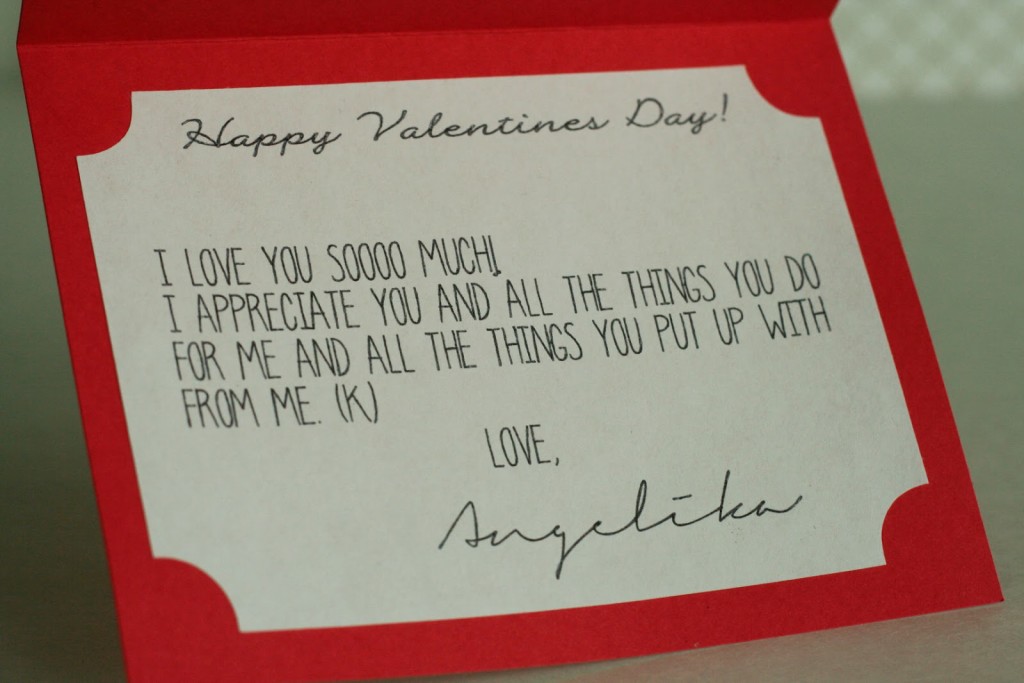 Happy Valentines Day!
I LOVE YOU SOOOO MUCH!
I APPRECIATE YOU AND ALL THE THINGS YOU DO
FOR ME AND ALL THE THINGS YOU PUT UP WITH
FROM ME. (K)
LOVE,
Angelika